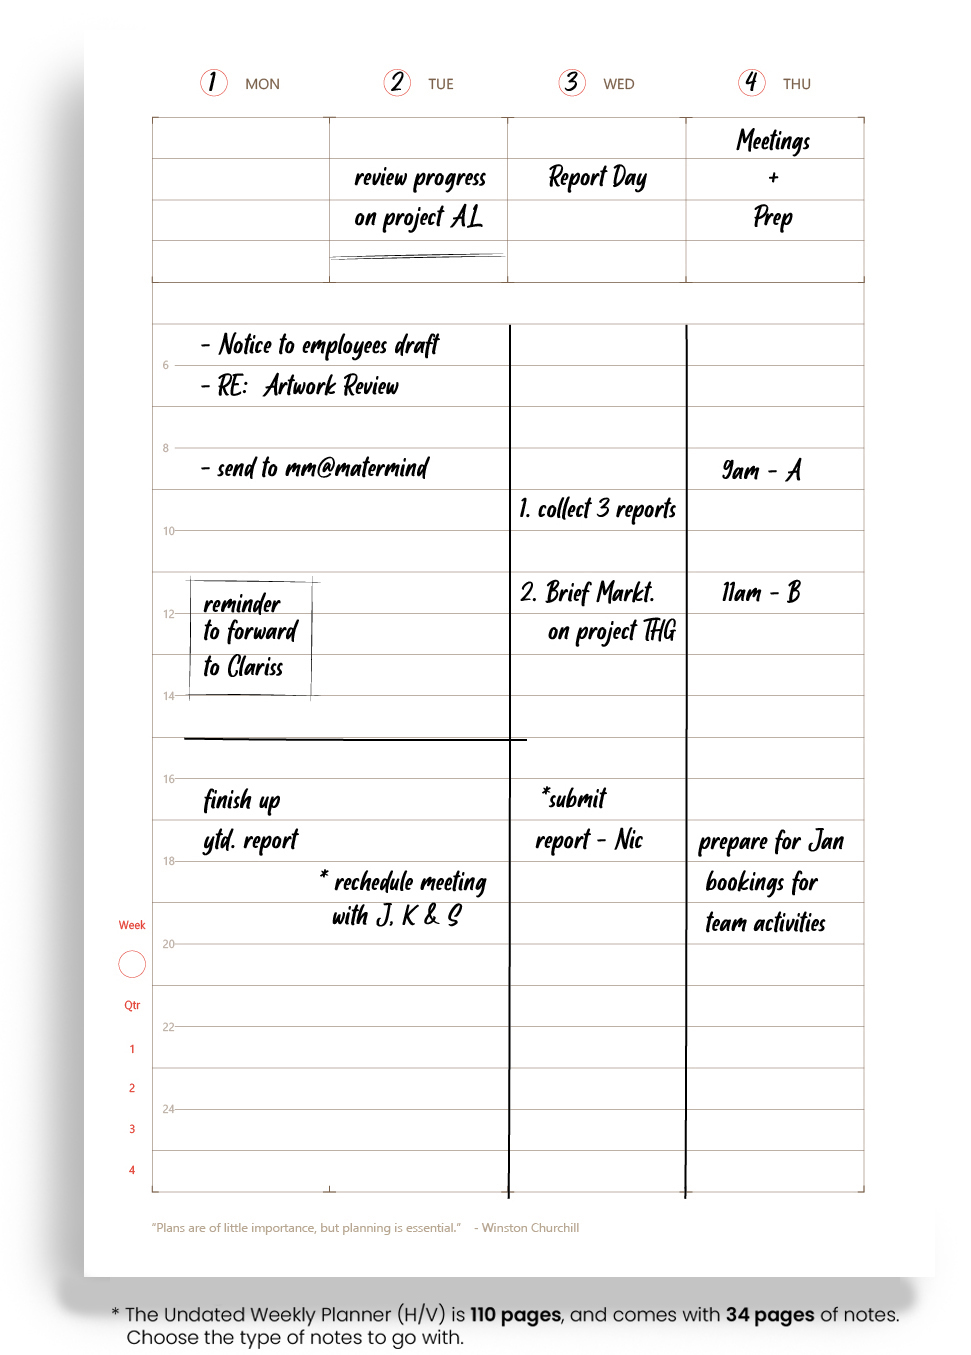 1 MON 2 TUE 3 WED 4 THU
Meetings
review progress Report Day +
on project AL Prep
- Notice to employees draft
6
- RE: Artwork Review
8
- send to mm@matermind 9am - A
1. collect 3 reports
10
reminder 2. Brief Markt. 11am - B
12
to forward on project THG
to Clariss
14
16
finish up *submit
ytd. report report - Nic prepare for Jan
18
* rechedule meeting bookings for
with J, K & S team activities
Week
20
Qtr
22
1
2
24
3
4
"Plans are of little importance, but planning is essential." - Winston Churchill
* The Undated Weekly Planner (H/V) is 110 pages, and comes with 34 pages of notes.
Choose the type of notes to go with.